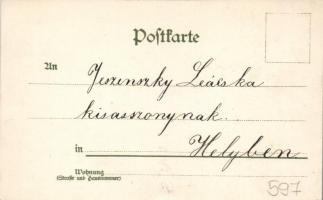 Postkarte
An Jeszenszky Leácska
kisasszonynak.
in Helyben
Wohnung
(Strasse und Hausnummer)
597